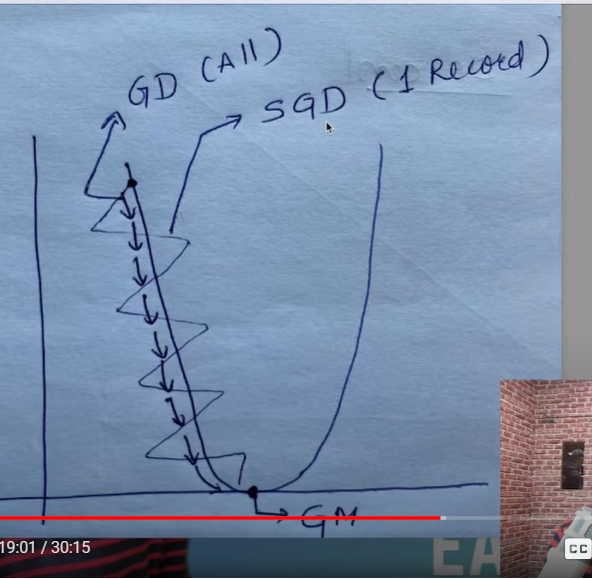 GD (All)
SGD (1 Record)
GM
19:01 / 30:15
CC
EA